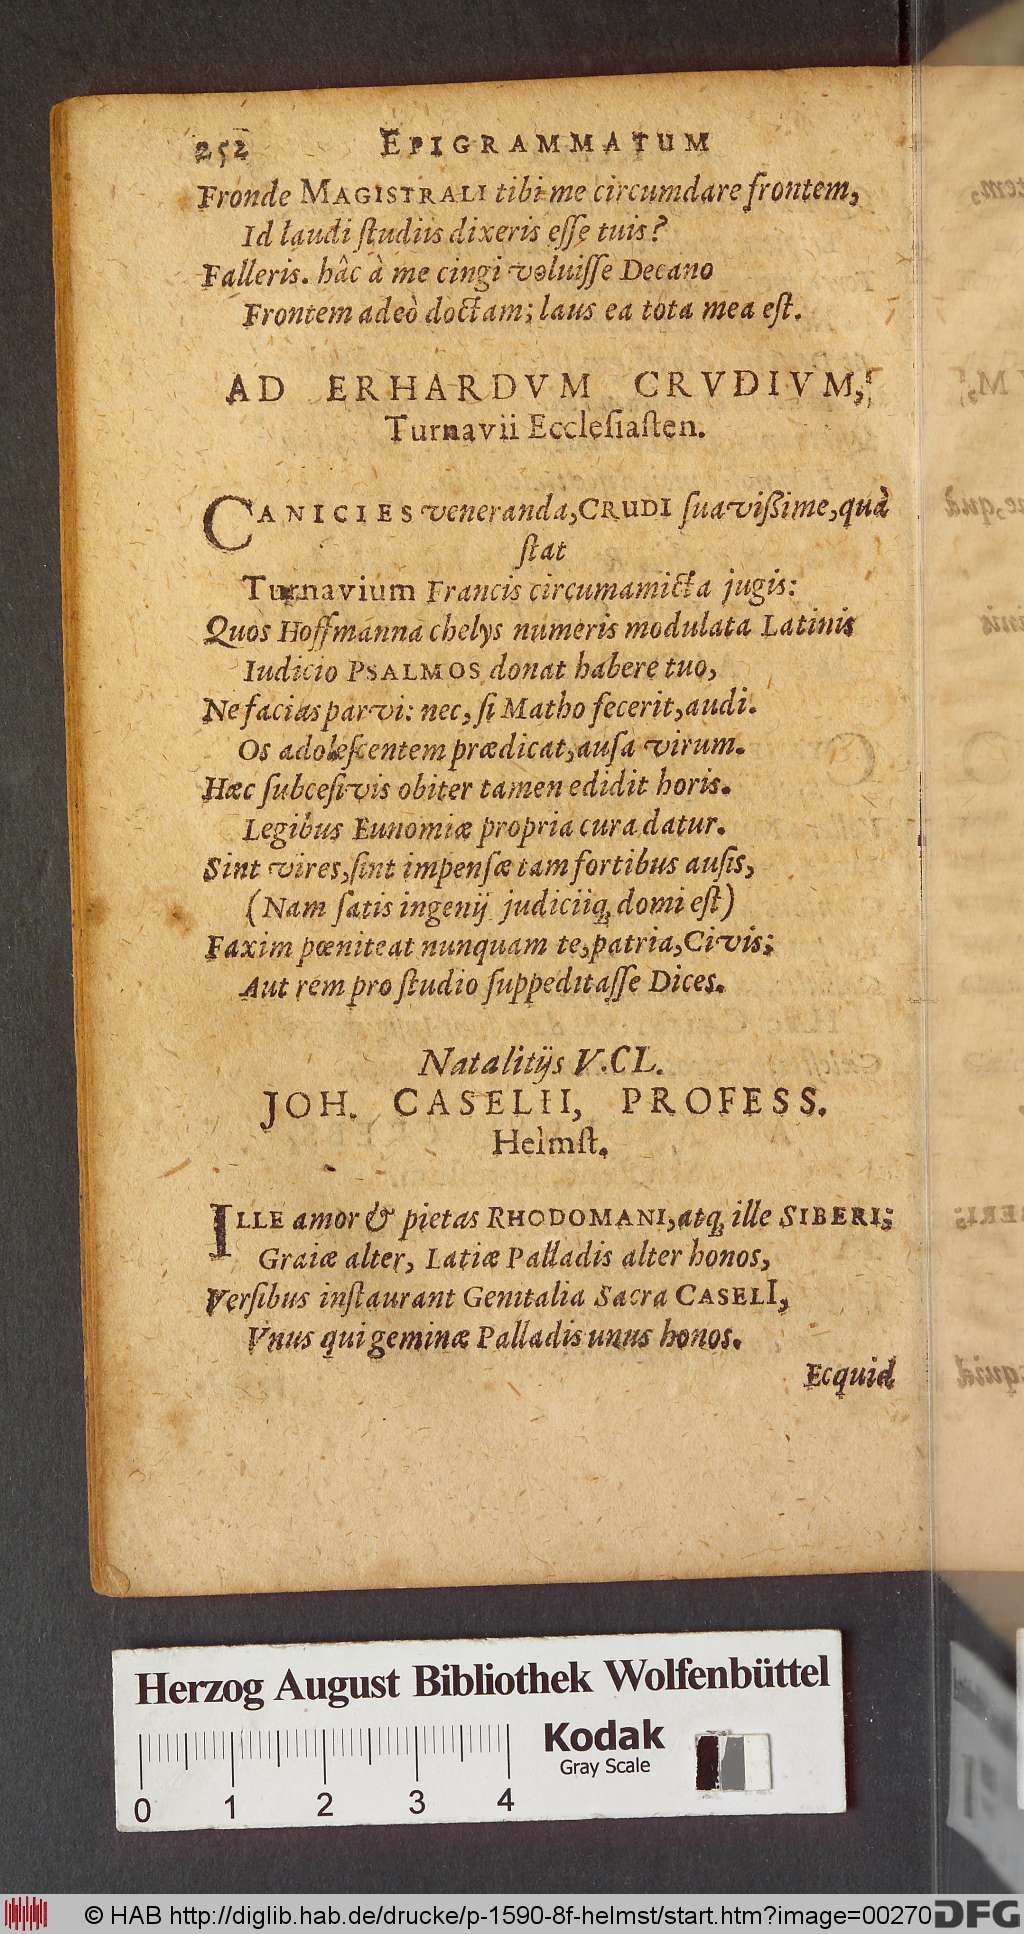 252 EPIGRAMMATUM
Fronde MAGISTRALI tibi me circumdare frontem,
Id laudi ſtudiis dixeris eſſe tuis?
Falleris. hâc à me cingi voluiſſe Decano
Frontem adeò doctam; laus ea tota mea eſt.
AD ERHARDVM CRVDIVM,
Turnavii Eccleſiaſten.
CANICIES veneranda, CRUDI ſuavißime, quà
ſtat
Turnavium Francis circumamicta jugis:
Quos Hoffmanna chelys numeris modulata Latinis
Iudicio PSALMOS donat habere tuo,
Ne facias parvi: nec, ſi Matho fecerit, audi.
Os adoleſcentem prædicat, auſa virum.
Hæc ſubceſivis obiter tamen edidit horis.
Legibus Eunomiæ propria cura datur.
Sint vires, ſint impenſæ tam fortibus auſis,
(Nam ſatis ingenij judiciiq́; domi eſt)
Faxim pœniteat nunquam te, patria, Civis;
Aut rem pro ſtudio ſuppeditaſſe Dices.
Natalitijs V.CL.
JOH. CASELII, PROFESS.
Helmſt.
ILLE amor & pietas RHODOMANI, atq́; ille SIBERI;
Graiæ alter, Latiæ Palladis alter honos,
Verſibus inſtaurant Genitalia Sacra CASELI,
Vnus qui geminæ Palladis unus honos.
Ecquid
Herzog August Bibliothek Wolfenbüttel
Kodak
Gray Scale
0 1 2 3 4
© HAB http://diglib.hab.de/drucke/p-1590-8f-helmst/start.htm?image=00270
DFG